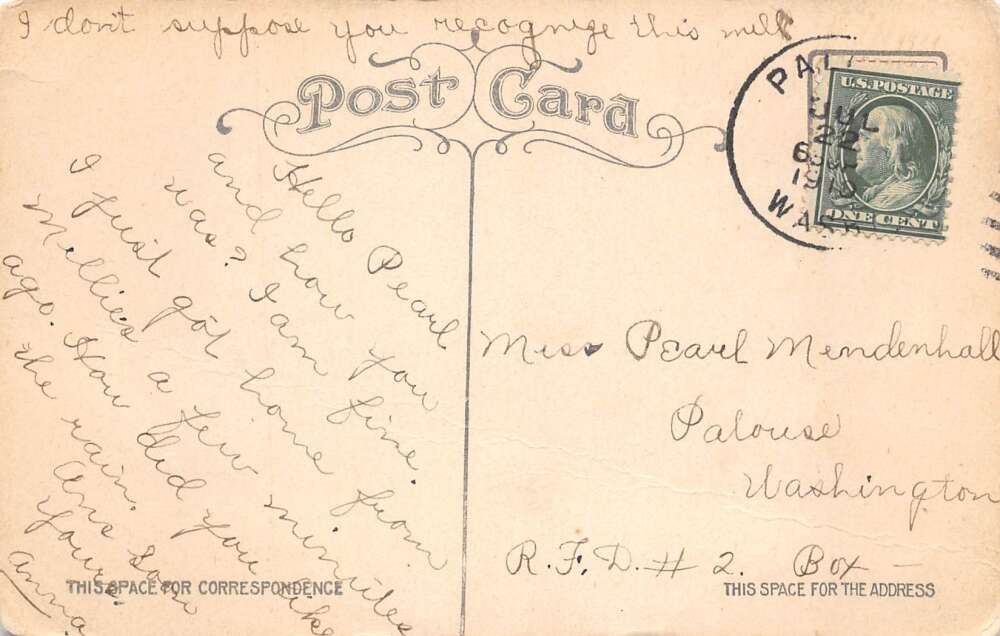 I don't suppose you recognize this mill
Post Card
PAL
JUL
22
1910
WASH
U.S. POSTAGE
ONE CENT
Hello Pearl
and how you
was? I am fine.
I just got home from
Mellies a few minutes
ago. How did you like
the rain.
Ans Soon
Yours.
Anna
Miss Pearl Mendenhall
Palouse
Washington
R.F.D. # 2. Box –
THIS SPACE FOR CORRESPONDENCE
THIS SPACE FOR THE ADDRESS